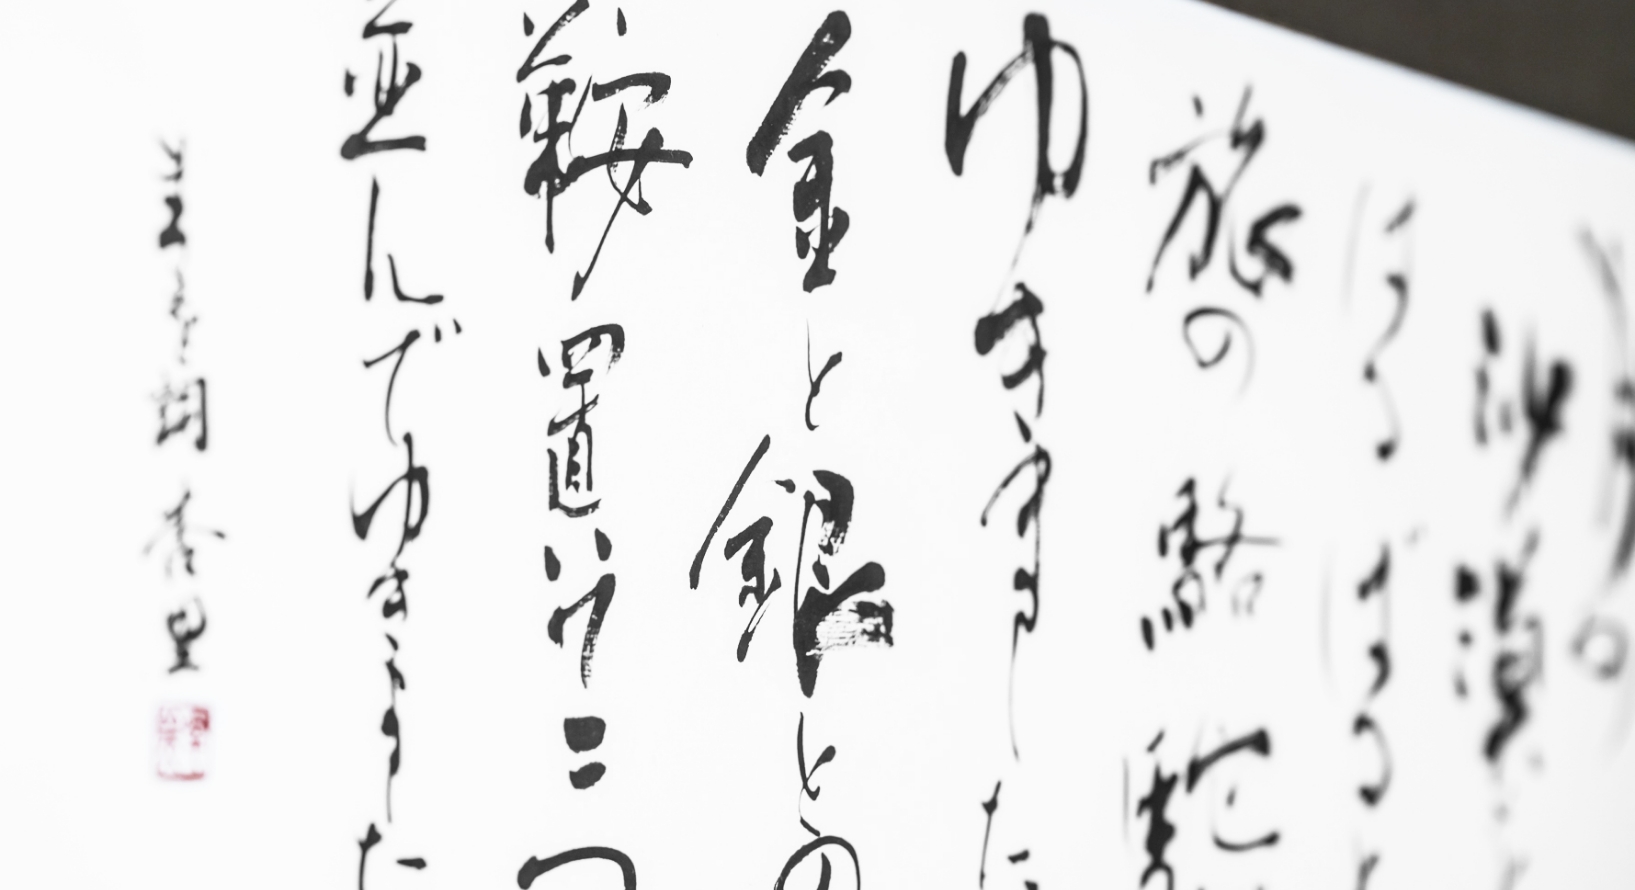 の
沙漠
はるばると
旅の駱駝
ゆきました
金と銀との
鞍置いて二つ
並んでゆきました